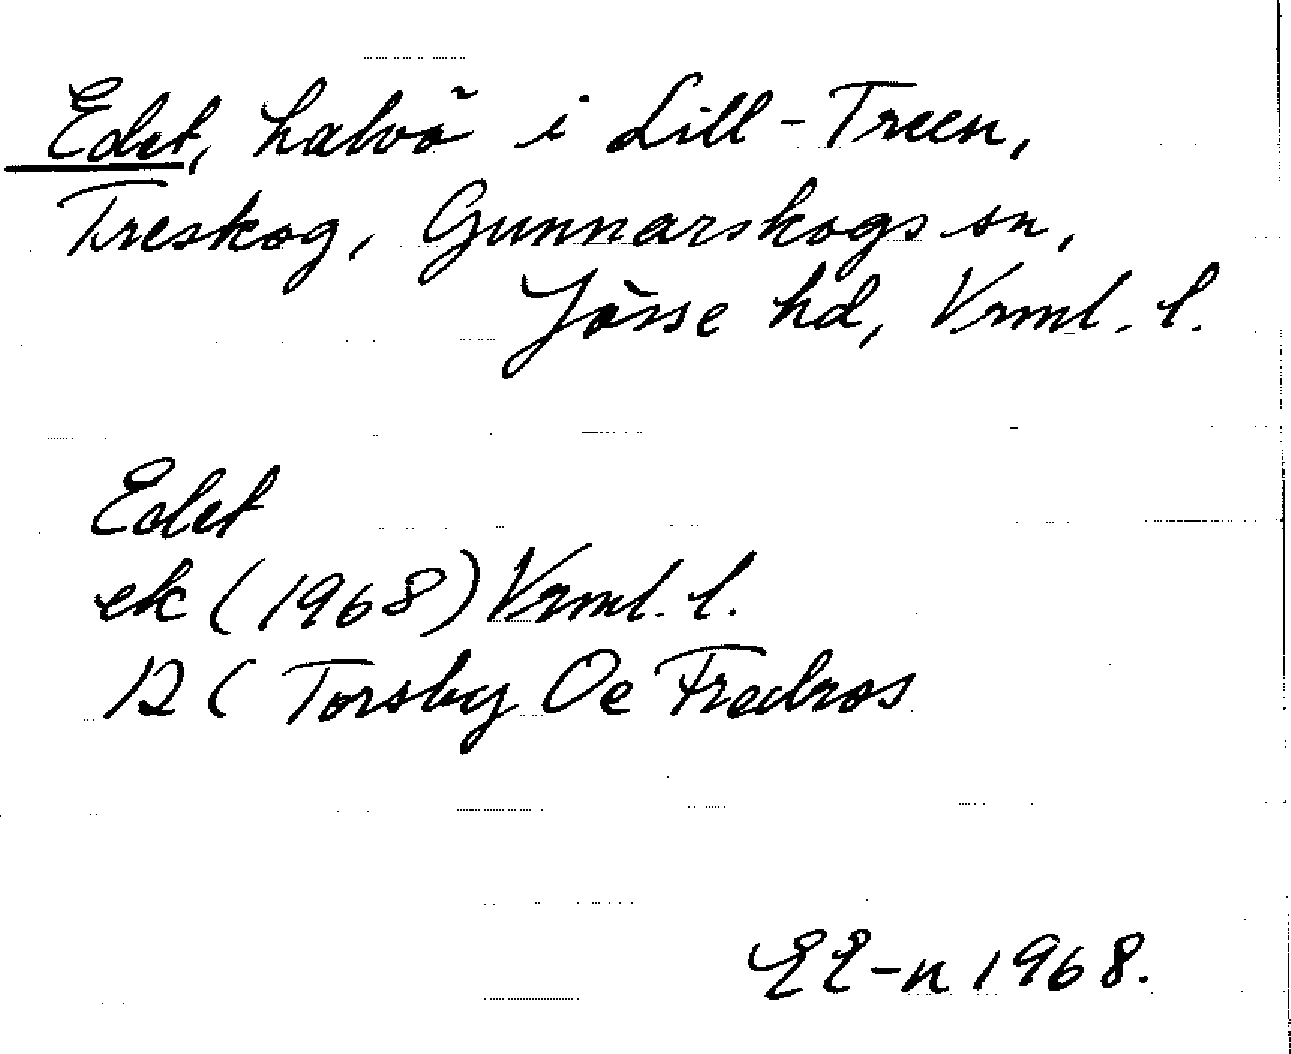 Edet, halvö i Lill-Treen,
Treskog, Gunnarskogs sn,
Jösse hd, Vrml. l.
Edet
ek (1968) Vrml. l.
12 C Torsby Oe Fredros
EE-n 1968.